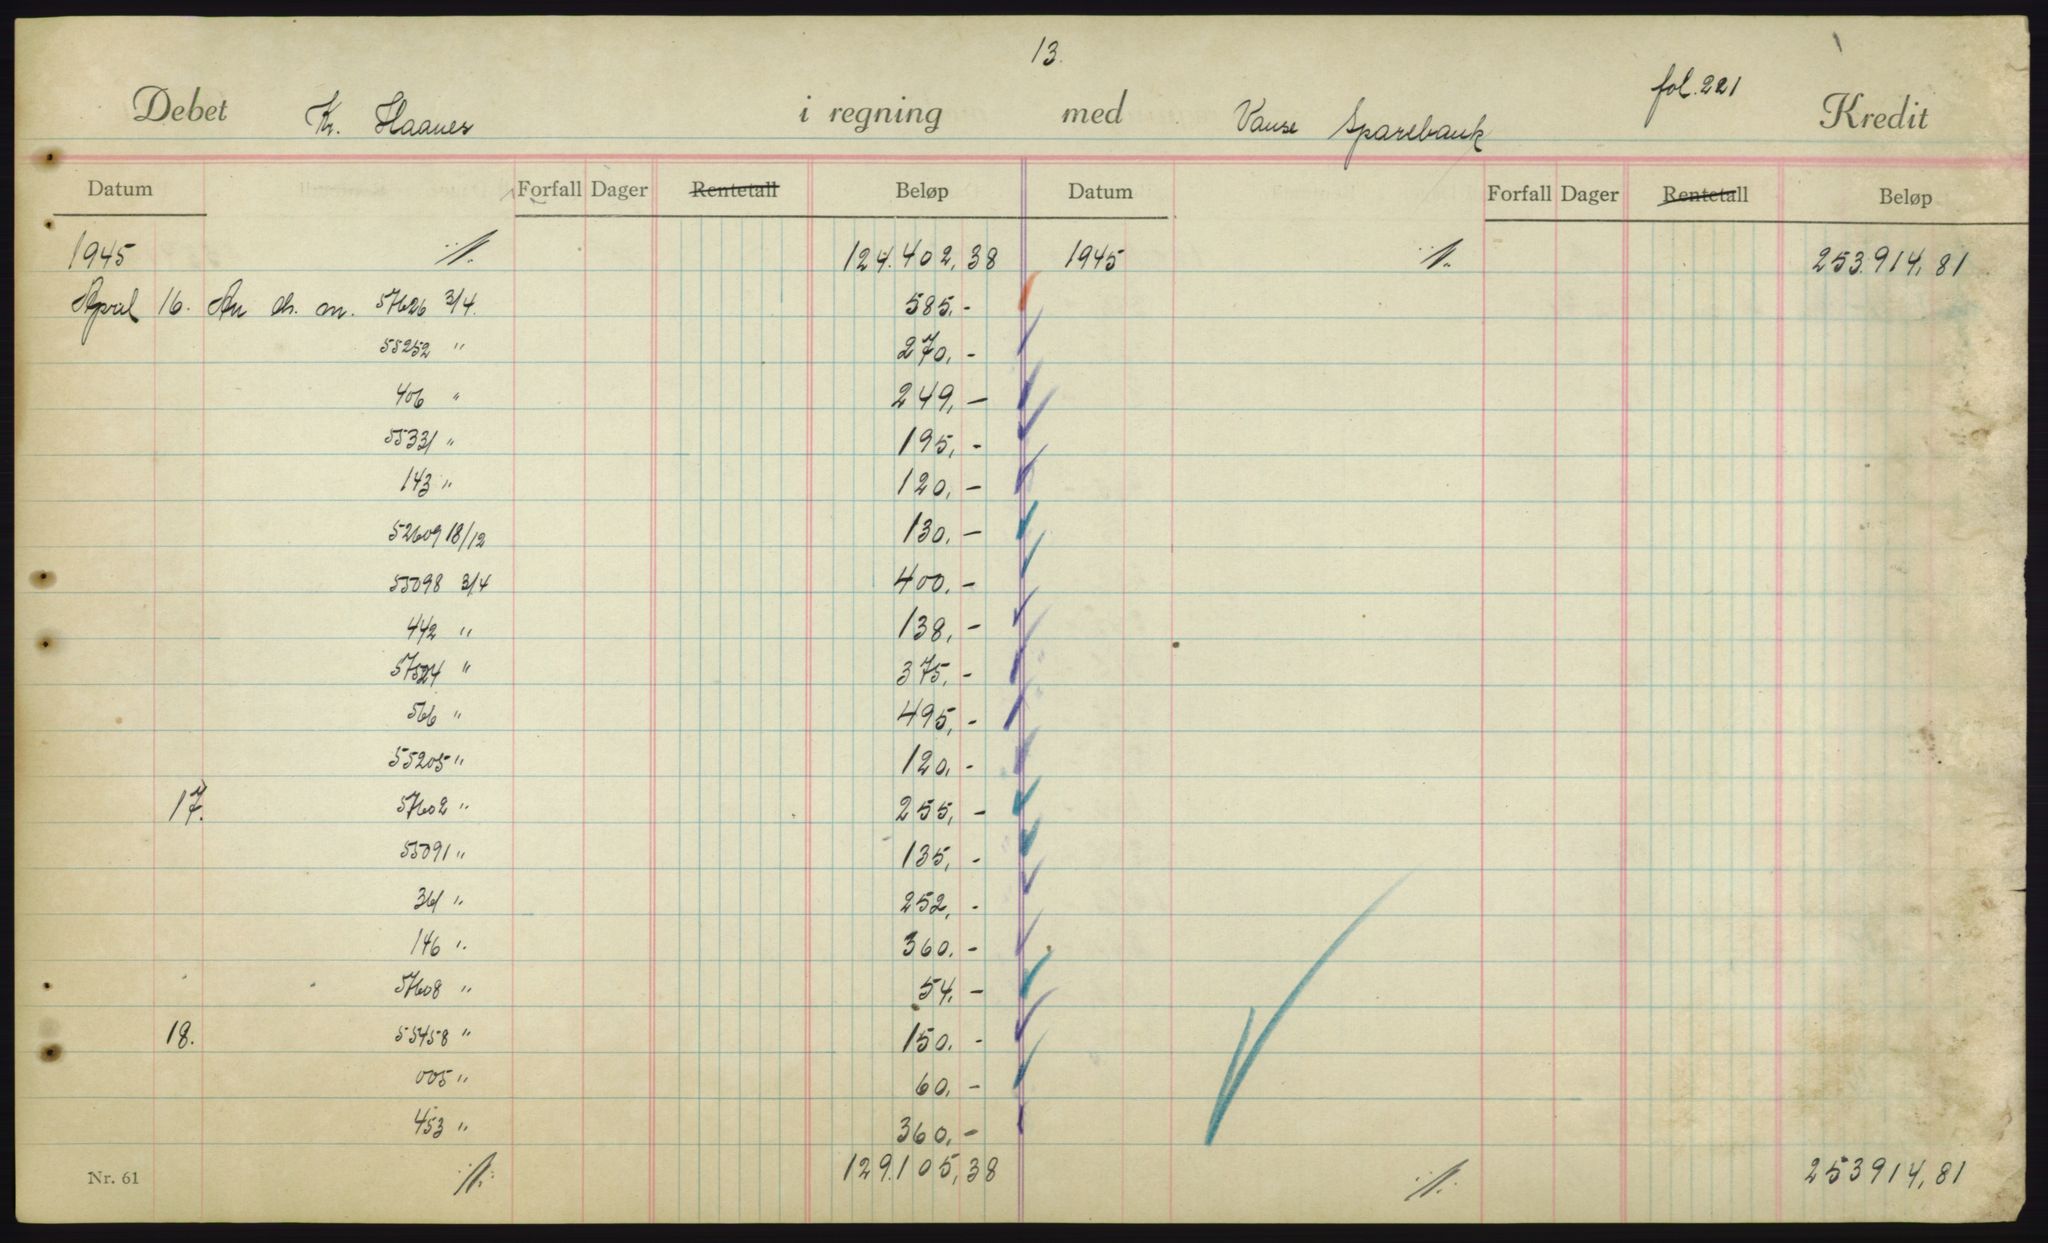 13.
fol. 221
Debet Kr. Haanes i regning med Vanse Sparebank Kredit
Datum Forfall Dager Rentetall Beløp Datum Forfall Dager Rentetall Beløp
1945 ·/. 124.402,38 1945 ·/. 253.914,81
April 16. An ch. m. 57626 3/4. 585.-
55252 " 270.-
406 " 249,-
55331 " 195,-
143 " 120,-
52609 18/12 130,-
55098 3/4 400.-
442 " 138,-
57524 " 375,-
566 " 495,-
55205 " 120,-
17. 57602 " 255,-
55091 " 135,-
361 " 252,-
146 " 360.-
57608 " 54,-
18. 55458 " 150.-
005 " 60,-
453 " 360,-
Nr. 61 ·/. 129.105,38 ·/. 253914,81